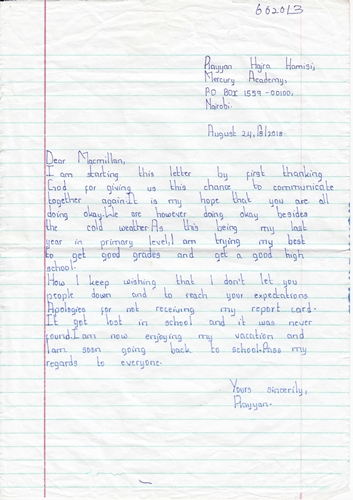 662013
Rayyan Hajra Hamisi,
Mercury Academy,
P.O BOX 1559 -00100,
Nairobi.
August 24, 2018
Dear Macmillan,
I am starting this letter by first thanking
God for giving us this chance to communicate
together again.It is my hope that you are all
doing okay.We are however doing okay besides
the cold weather.As this being my last
year in primary level,I am trying my best
to get good grades and get a good high
school.
How I keep wishing that I don't let you
people down and to reach your expectations
Apologies for not receiving my report card.
It got lost in school and it was never
found.I am now enjoying my vacation and
I am soon going back to school.Pass my
regards to everyone.
Yours sincerily,
Rayyan.